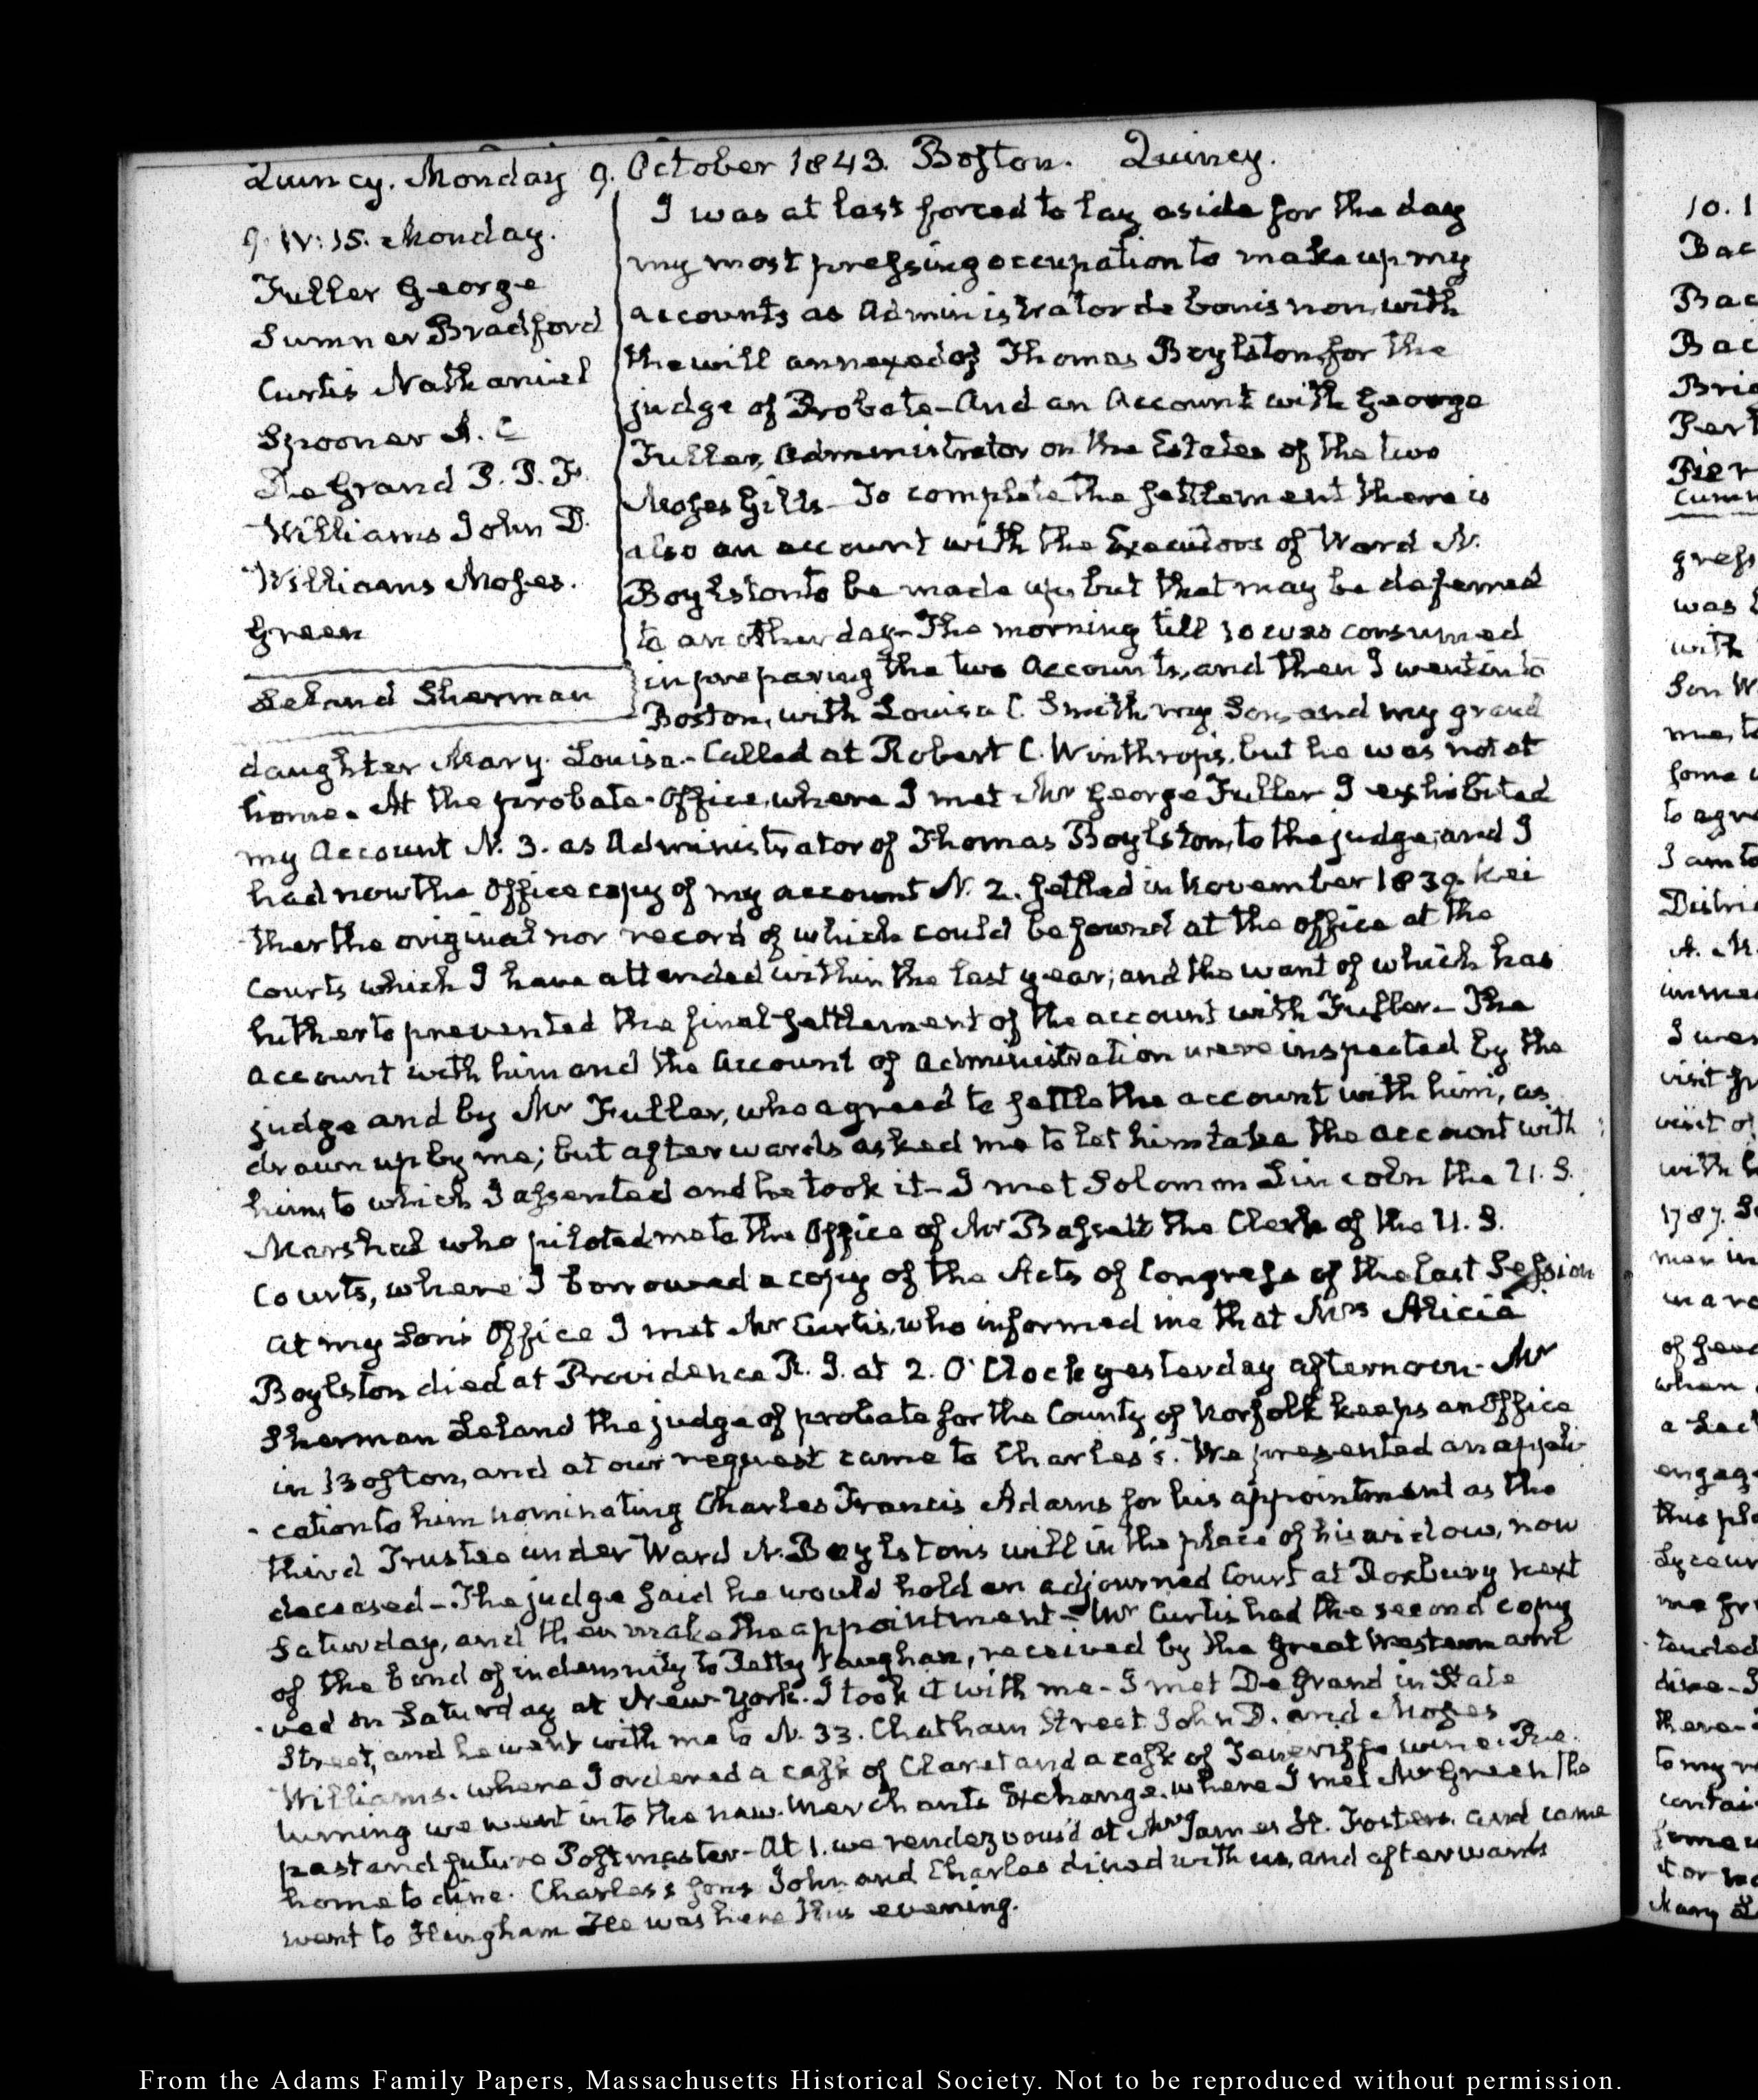 Quincy. Monday 9. October 1843. Boston. Quincy.
9. IV:15. Monday.
Fuller George
Sumner Bradford
Curtis Nathaniel
Spooner A. C
De Grand P. P. F.
Williams John D.
Williams Moses.
Green
Leland Sherman
I was at last forced to lay aside for the day
my most pressing occupation to make up my
accounts as Administrator de bonis non, with
the will annexed of Thomas Boylston, for the
judge of Probate—And an Account with George
Fuller, Administrator on the Estates of the two
Moses Gills—To complete the settlement there is
also an account with the Executors of Ward N.
Boylston to be made up, but that may be deferred
to an other day—The morning till 10 was consumed
in preparing the two Accounts, and then I went in to
Boston, with Louisa C. Smith, my Son, and my grand
daughter Mary Louisa.—Called at Robert C. Winthrop's, but he was not at
home. At the probate-Office, where I met Mr George Fuller I exhibited
my Account N. 3. as Administrator of Thomas Boylston, to the judge; and I
had now the Office copy of my account N. 2. settled in November 1839. Nei
ther the original nor record of which could be found at the office at the
Courts which I have attended within the last year; and the want of which has
hitherto prevented the final settlement of the account with Fuller—The
account with him and the Account of administration were inspected by the
judge and by Mr Fuller, who agreed to settle the account with him, as
drawn up by me; but afterwards asked me to let him take the account with
him, to which I assented and he took it—I met Solomon Lincoln the U.S.
Marshal who piloted me to the Office of Mr Bassett the Clerk of the U.S.
Courts, where I borrowed a copy of the Acts of Congress of the last Session
At my Son's Office I met Mr Curtis, who informed me that Mrs Alicia
Boylston died at Providence R.I. at 2. O'Clock yesterday afternoon—Mr
Sherman Leland the judge of probate for the County of Norfolk keeps an Office
in Boston, and at our request came to Charles's. We presented an appli
cation to him nominating Charles Francis Adams for his appointment as the
third Trustee under Ward N. Boylston's will in the place of his widow, now
deceased—The judge said he would hold an adjourned Court at Roxbury next
Saturday, and then make the appointment—Mr Curtis had the second copy
of the bond of indemnity to Petty Vaughan, received by the Great Western arri
ved on Saturday at New-York. I took it with me—I met De Grand in State
Street, and he went with me to N. 33. Chatham Street John D. and Moses
Williams. where I ordered a cask of Claret and a cask of Teneriffe wine. Re
turning we went into the new Merchants Exchange. where I met Mr Green the
past and future Postmaster—At 1. we rendezvous'd at Mr James H. Foster's. and came
home to dine. Charles's sons John and Charles dined with us, and afterwards
went to Hingham He was here this evening.
10. 1
Bac
Bac
Bac
Bri
Pier
gress
was
with
Son W
me, t
some
to agr
I am to
Distric
A. M.
I wen
visit
visit of
with
1787.
when
engag
Lyceum
dine
there
to my
contai
some
Mary
From the Adams Family Papers, Massachusetts Historical Society. Not to be reproduced without permission.